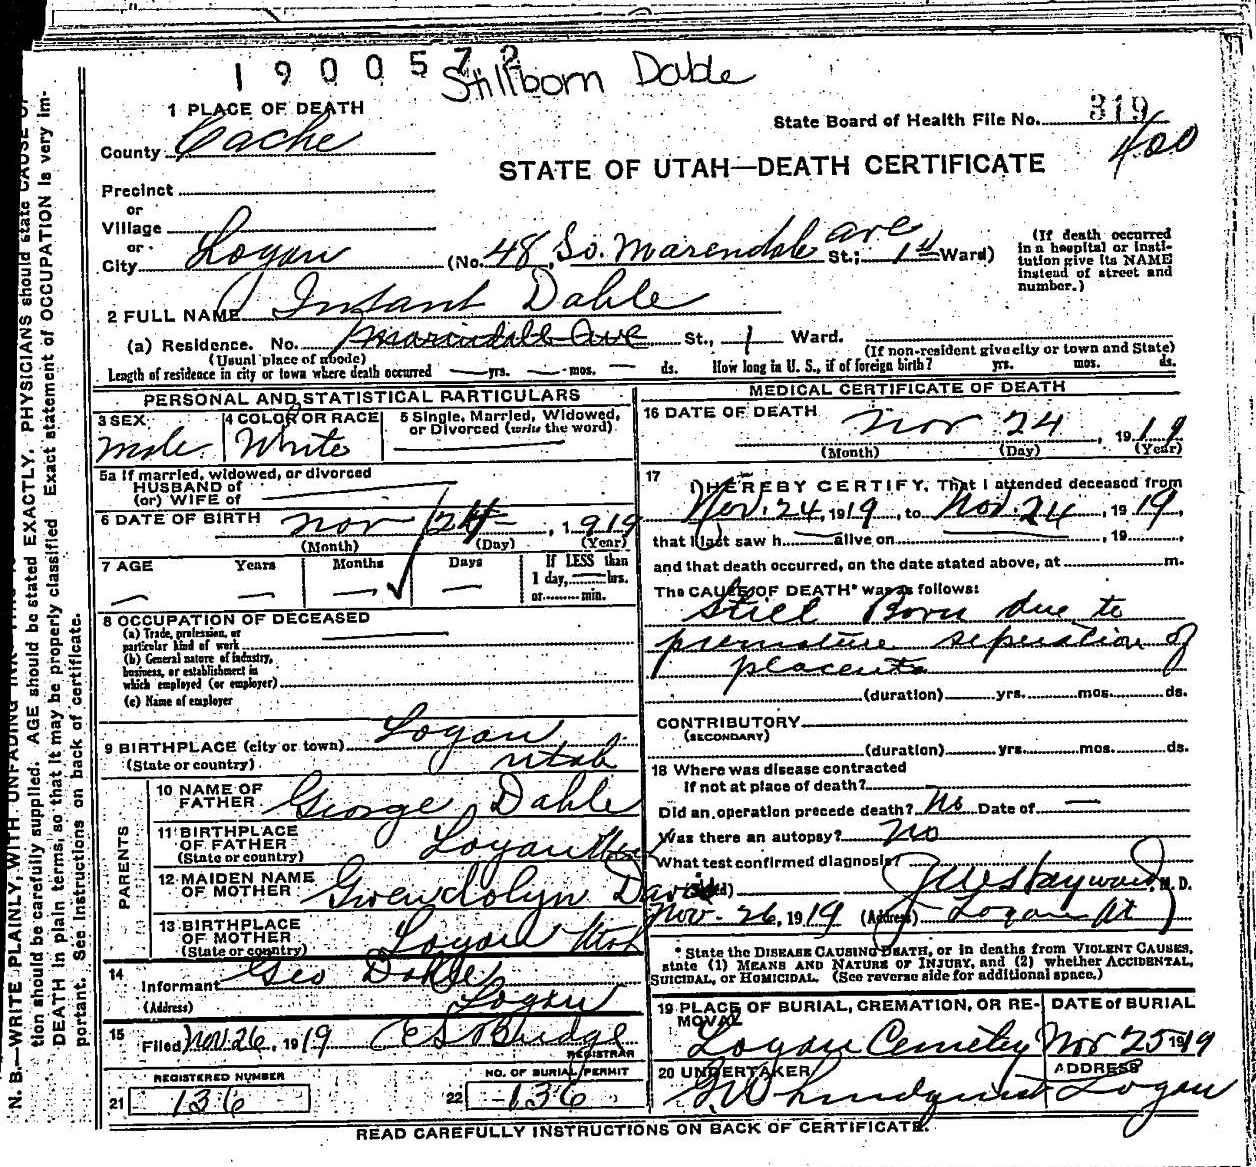 1900572
Stillborn Dahle
1 PLACE OF DEATH
State Board of Health File No. 319
400
County Cache
STATE OF UTAH—DEATH CERTIFICATE
Precinct
or
Village
or
City Logan (No. 48 So. Marendale ave St.; 1st Ward)
(If death occurred in a hospital or institution give its NAME instead of street and number.)
2 FULL NAME Infant Dahle
(a) Residence. No. Marindale Ave St., 1 Ward.
(Usual place of abode) (If non-resident give city or town and State)
Length of residence in city or town where death occurred — yrs. — mos. — ds. How long in U. S., if of foreign birth? yrs. mos. ds.
PERSONAL AND STATISTICAL PARTICULARS
3 SEX male
4 COLOR OR RACE White
5 Single, Married, Widowed, or Divorced (write the word)
5a If married, widowed, or divorced
HUSBAND of
(or) WIFE of
6 DATE OF BIRTH Nov 24, 1919
(Month) (Day) (Year)
7 AGE Years Months Days
— — — —
If LESS than
1 day, — hrs.
or min.
8 OCCUPATION OF DECEASED
(a) Trade, profession, or
particular kind of work
(b) General nature of industry,
business, or establishment in
which employed (or employer)
(c) Name of employer
9 BIRTHPLACE (city or town) Logan
(State or country) Utah
PARENTS
10 NAME OF FATHER George Dahle
11 BIRTHPLACE OF FATHER (State or country) Logan Utah
12 MAIDEN NAME OF MOTHER Gwendolyn
13 BIRTHPLACE OF MOTHER (State or country) Logan Utah
14
Informant Geo Dahle
(Address) Logan
15
Filed Nov. 26, 1919
REGISTRAR
REGISTERED NUMBER
21 136
NO. OF BURIAL PERMIT
22 136
MEDICAL CERTIFICATE OF DEATH
16 DATE OF DEATH
Nov 24, 1919
(Month) (Day) (Year)
17
I HEREBY CERTIFY, That I attended deceased from
Nov. 24, 1919, to Nov. 24, 1919,
that I last saw h alive on , 19 ,
and that death occurred, on the date stated above, at m.
The CAUSE OF DEATH* was as follows:
Still Born due to
premature seperation of
placenta
(duration) yrs. mos. ds.
CONTRIBUTORY
(SECONDARY)
(duration) yrs. mos. ds.
18 Where was disease contracted
if not at place of death?
Did an operation precede death? No Date of —
Was there an autopsy? No
What test confirmed diagnosis?
(Signed) Hayward, M. D.
Nov. 26, 1919 (Address) Logan Ut
* State the DISEASE CAUSING DEATH, or in deaths from VIOLENT CAUSES,
state (1) MEANS AND NATURE OF INJURY, and (2) whether ACCIDENTAL,
SUICIDAL, or HOMICIDAL. (See reverse side for additional space.)
19 PLACE OF BURIAL, CREMATION, OR REMOVAL
Logan Cemetery
DATE of BURIAL
Nov 25 1919
20 UNDERTAKER
ADDRESS
Logan
READ CAREFULLY INSTRUCTIONS ON BACK OF CERTIFICATE.
AGE should be stated EXACTLY. PHYSICIANS should state CAUSE OF
N. B.—WRITE PLAINLY, WITH UNFADING INK
tion should be carefully supplied.
DEATH in plain terms, so that it may be properly classified. Exact statement of OCCUPATION is very im-
portant. See instructions on back of certificate.